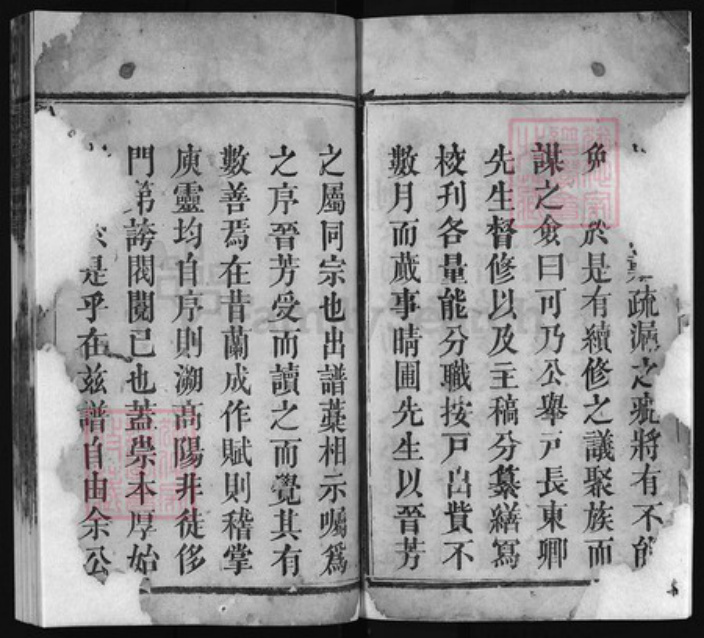 疏漏之玼將有不能
免於是有續修之議聚族而
謀之僉曰可乃公舉戸長東卿
先生督修以及主稿分纂繕寫
校刋各量能分職按戸出貲不
數月而蕆事晴圃先生以晉芳
之屬同宗也出譜藁相示嘱爲
之序晉芳受而讀之而覺其有
數善焉在昔蘭成作賦則稽掌
庾靈均自序則溯高陽非徒侈
門第誇閥閱已也葢崇本厚始
於是乎在兹譜自由余公